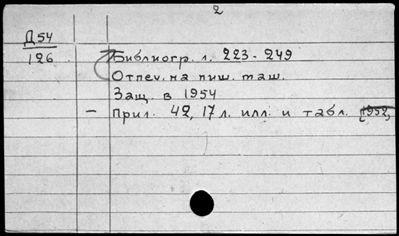 2
Д54
126
Библиогр. л. 223-249
Отпеч. на пиш. маш.
Защ. в 1954
— Прил. 42, 17 л. илл. и табл. [1952]